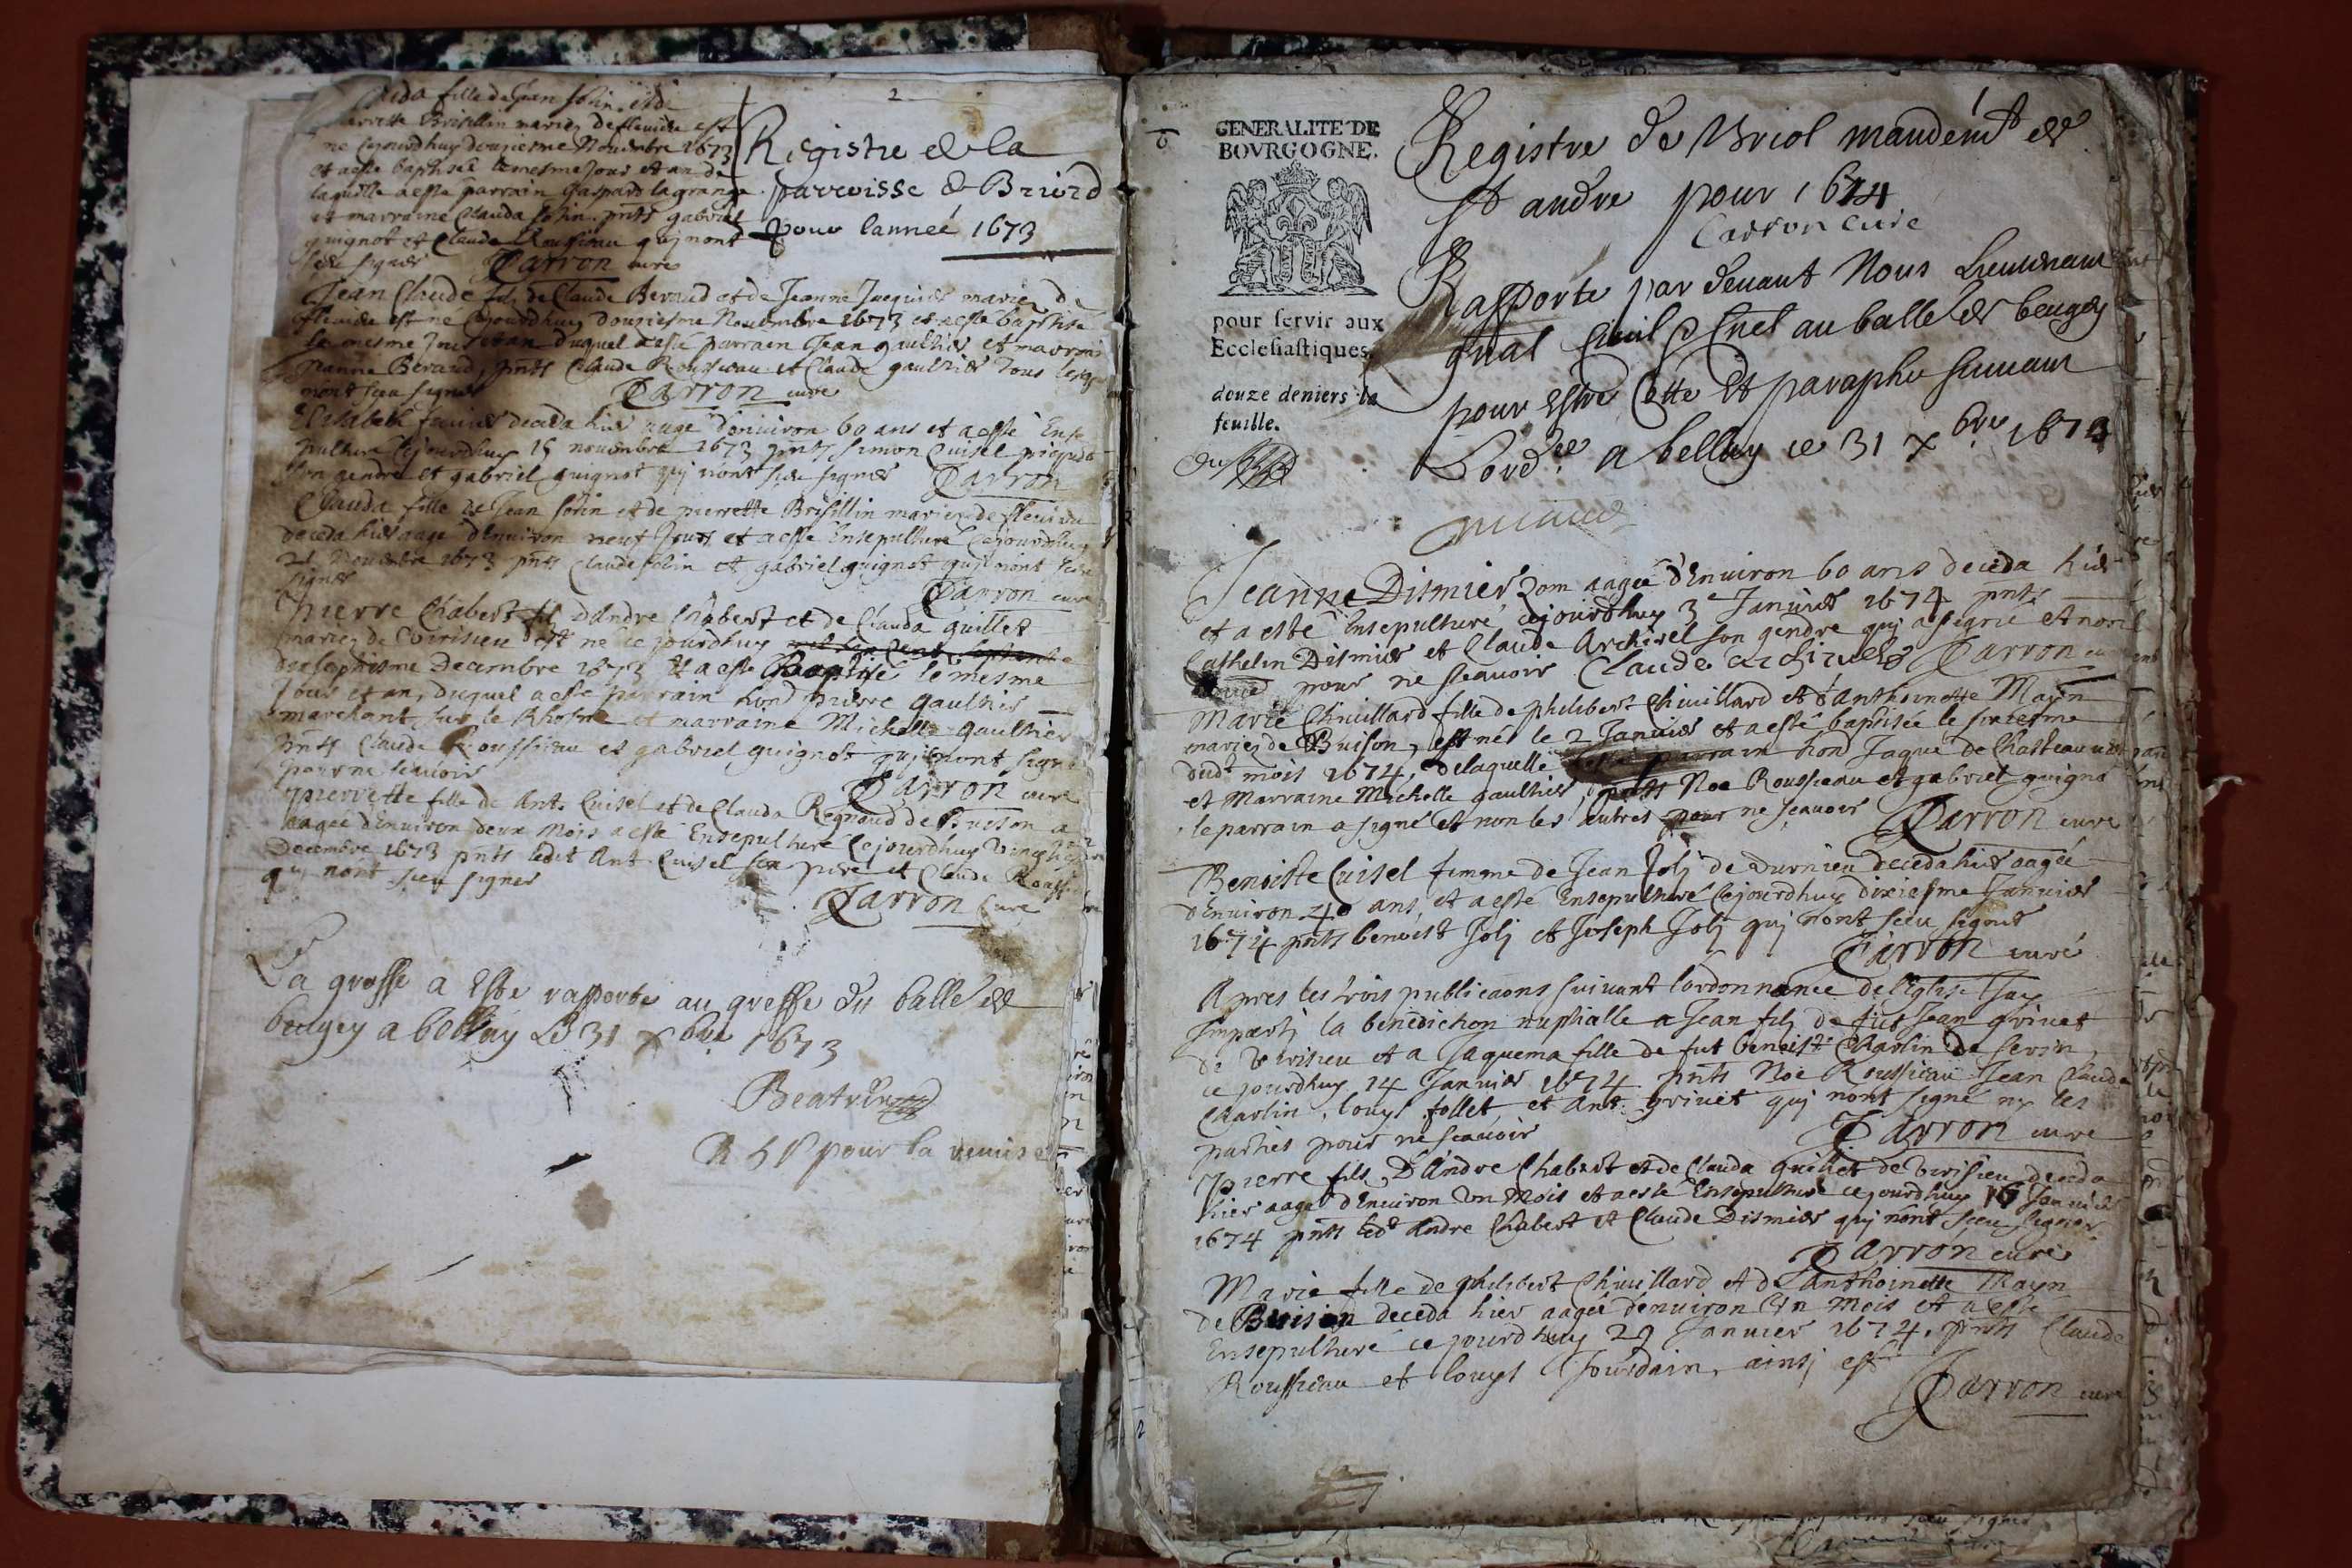 2
Registre de la
parroisse de Briord
pour lannée 1673
Clauda fille de Jean Solin et de
pierrette Brisillin mariez de flevieu est
née cejourdhuy douziesme Novembre 1673
et a esté baptisée le mesme jour et an de
laquelle a esté parrain Gaspard lagrange
et marraine Clauda Solin pnts gabriel
guignot et Claude Rousseau quj nont
sceu signer Carron curé
Jean Claude filz de Claude Beraud et de Jeanne Jacquier mariez de
flevieu est né cejourdhuy douziesme Novembre 1673 et a esté baptisé
le mesme jour et an duquel a esté parrain Jean gaultier et marraine
Beraud, pnts Claude Rousseau et Claude gaultier tous
nont sceu signer Carron curé
Elisabeth deceda hier aage denviron 60 ans et a esté Ense
pulture cejourdhuy 15 novembre 1673 pnts Simon Cuisel
son gendre et gabriel guignot quj nont sceu signer Carron
Clauda fille de Jean Solin et de pierrette Brisillin mariez de flevieu
deceda hier aage denviron neuf jours et a esté Ensepulturé cejourdhuy
21 Novembre 1673 pnts Claude Solin et gabriel guignot quj nont sceu
signer Carron curé
Pierre Chabert fil dAndre Chabert et de Clauda guillet
mariez de Vérisieu est né cejourdhuy
dixseptiesme Decembre 1673 et a esté Baptisé le mesme
jour et an, duquel a esté parrain hond pierre gaultier
marchant sur le Rhosne et marraine Michelle gaultier
pnts Claude Rousseau et gabriel guignot quj nont signé
pour ne scavoir Carron curé
pierrette fille de Ant. Cuisel et de Clauda Regnaud de Buison
aagee denviron deux mois a esté Ensepulturé cejourdhuy
Decembre 1673 pnts ledit Ant. Cuisel son pere et Claude Rousseau
quj nont sceu signer
Carron Curé
La grosse a Esté rapporté au greffe du balle de
beugey a bellay Le 31 xbre 1673
pour la remise
GENERALITE DE
BOVRGOGNE.
pour servir aux
Ecclesiastiques,
douze deniers la
feuille.
Registre de Briol mandemt de
St andre pour 1674
Carron curé
Rapporte par devant Nous Lieutenant
gnal Civil & Cnel au balle de beugey
pour Estre Cotte Et paraphe suivant
Lordce a bellay ce 31 xbre 1673
Jeanne Dismier aagée dEnviron 60 ans deceda hier
et a esté Ensepulturé cejourdhuy 3e Janvier 1674 pnts
Cathelin Dismier et Claude Archirel son gendre quj a signé et non l
pour ne scavoir Claude Carron curé
Marie Chivillard fille de philibert Chivillard et dAnthoinette Mayn
mariez de Buison, est née le 2 Janvier et a esté baptisée le sixiesme
dudt mois 1674, delaquelle a esté parrain hond Jaque de Chasteauvieux
et Marraine Michelle gaultier, pnts Noe Rousseau et gabriel guigno
le parrain a signé et non les autres pour ne scavoir Carron curé
Benoiste Cuisel femme de Jean Jolj de deceda hier aagée
dEnviron 40 ans, et a esté Ensepulturé cejourdhuy dixiesme Janvier
1674 pnts benoist Jolj et Joseph Jolj quj nont sceu signer
Carron curé
Apres les trois publicaons suivant lordonnance de lEglise Jay
Imparti la benediction nuptialle a Jean filz de fut Jean grivet
de Verisieu et a Jaquema fille de fut benoist Charlin de
ce jourdhuy 14 Janvier 1674 pnts Noe Rousseau Jean Claude
Charlin, Louys follet, et Ant. grivet quj nont signé ny les
parties pour ne scavoir Carron curé
Pierre filz DAndre Chabert et de Clauda guillet de Verisieu deceda
hier aagé dEnviron Un Mois et a esté Ensepulturé cejourdhuy 16 Janvier
1674 pnts ledt Andre Chabert et Claude Dismier quj nont sceu signer
Carron curé
Marie fille de philibert Chivillard et dAnthoinette Mayn
de Buison deceda hier aagée denviron Un Mois et a esté
Ensepulturé cejourdhuy 29 Janvier 1674. pnts Claude
Rousseau et Louys Jourdain, ainsj est
Carron curé